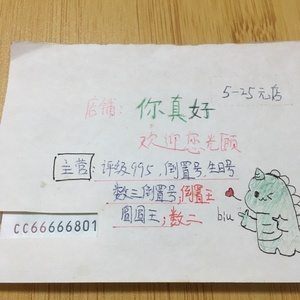 5-25元店
店铺：你真好
欢迎您光顾
主营：评级995，倒置号，生日号
数三倒置号，倒置王
圆圆王；数二
biu
CC66666801